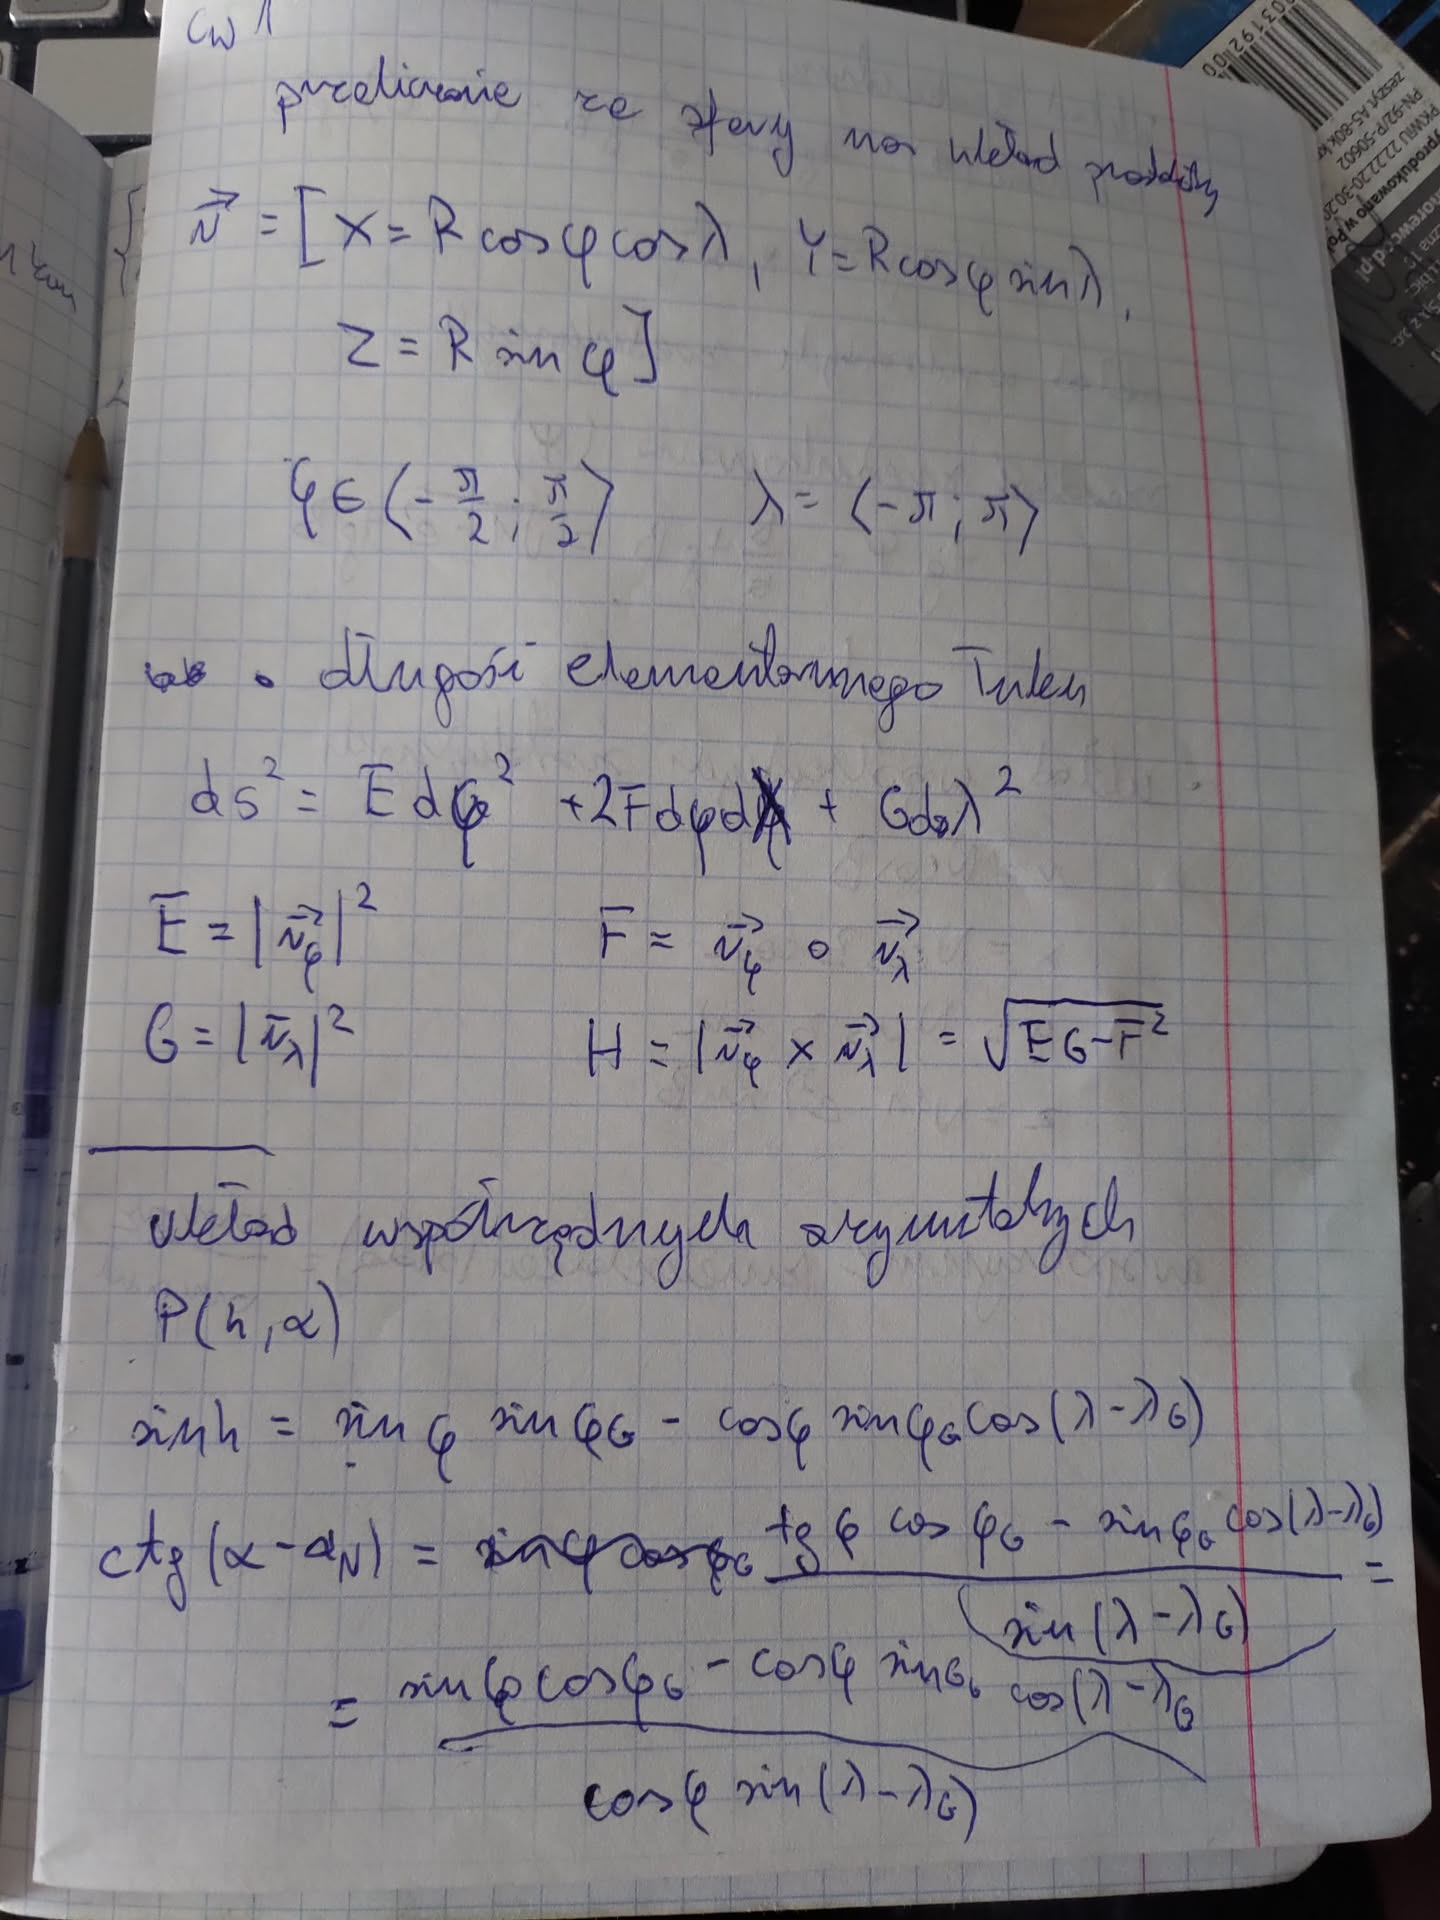 ćw 1
przeliczenie ze sfery na układ prostokątny
r⃗ = [X = R cosφ cosλ, Y = R cosφ sinλ,
Z = R sin φ]
φ ∈ ⟨-π/2 ; π/2⟩ λ = ⟨-π ; π⟩
• długość elementarnego łuku
ds² = E dφ² + 2F dφ dλ + G dλ²
E = |r⃗_φ|² F = r⃗_φ ∘ r⃗_λ
G = |r⃗_λ|² H = |r⃗_φ × r⃗_λ| = √(EG-F²)
układ współrzędnych azymutalnych
P(h, α)
sinh = sin φ sin φ_G - cosφ sinφ_G cos(λ-λ_G)
ctg(α-α_N) = (tg φ cos φ_G - sinφ_G cos(λ-λ_G)) / sin(λ-λ_G) =
= (sinφ cosφ_G - cosφ sin cos(λ-λ_G) / cosφ sin(λ-λ_G)
03192
zeszyt A5-80k
PN-92/P-50602
PKWIU 22.22.20-30.20